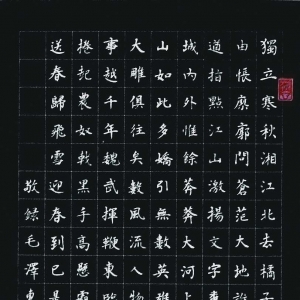 獨立寒秋湘江北去橘子
由悵廖廓問蒼茫大地誰
遒指點江山激揚文字
城內外惟餘莽莽大河上
山如此多嬌引無數英雄
大雕俱往矣數風流人物
事越千年魏武揮鞭東
捲起農奴戟黑手高懸
送春歸飛雪迎春到已是
敬錄毛澤東